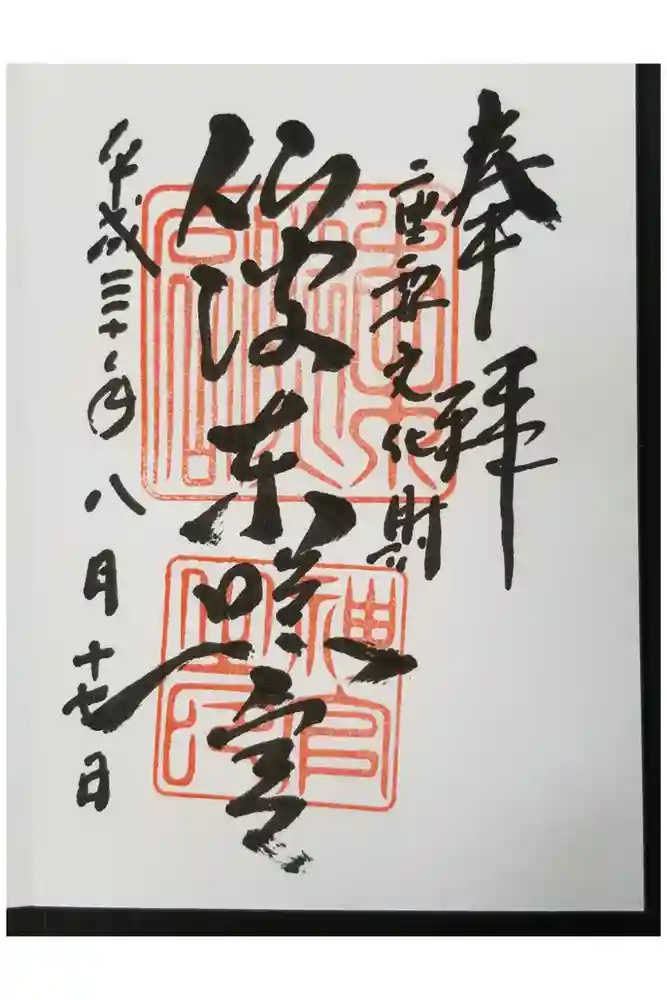 奉拝
重要文化財
仙波東照宮
平成三十年八月十七日
神官
之印